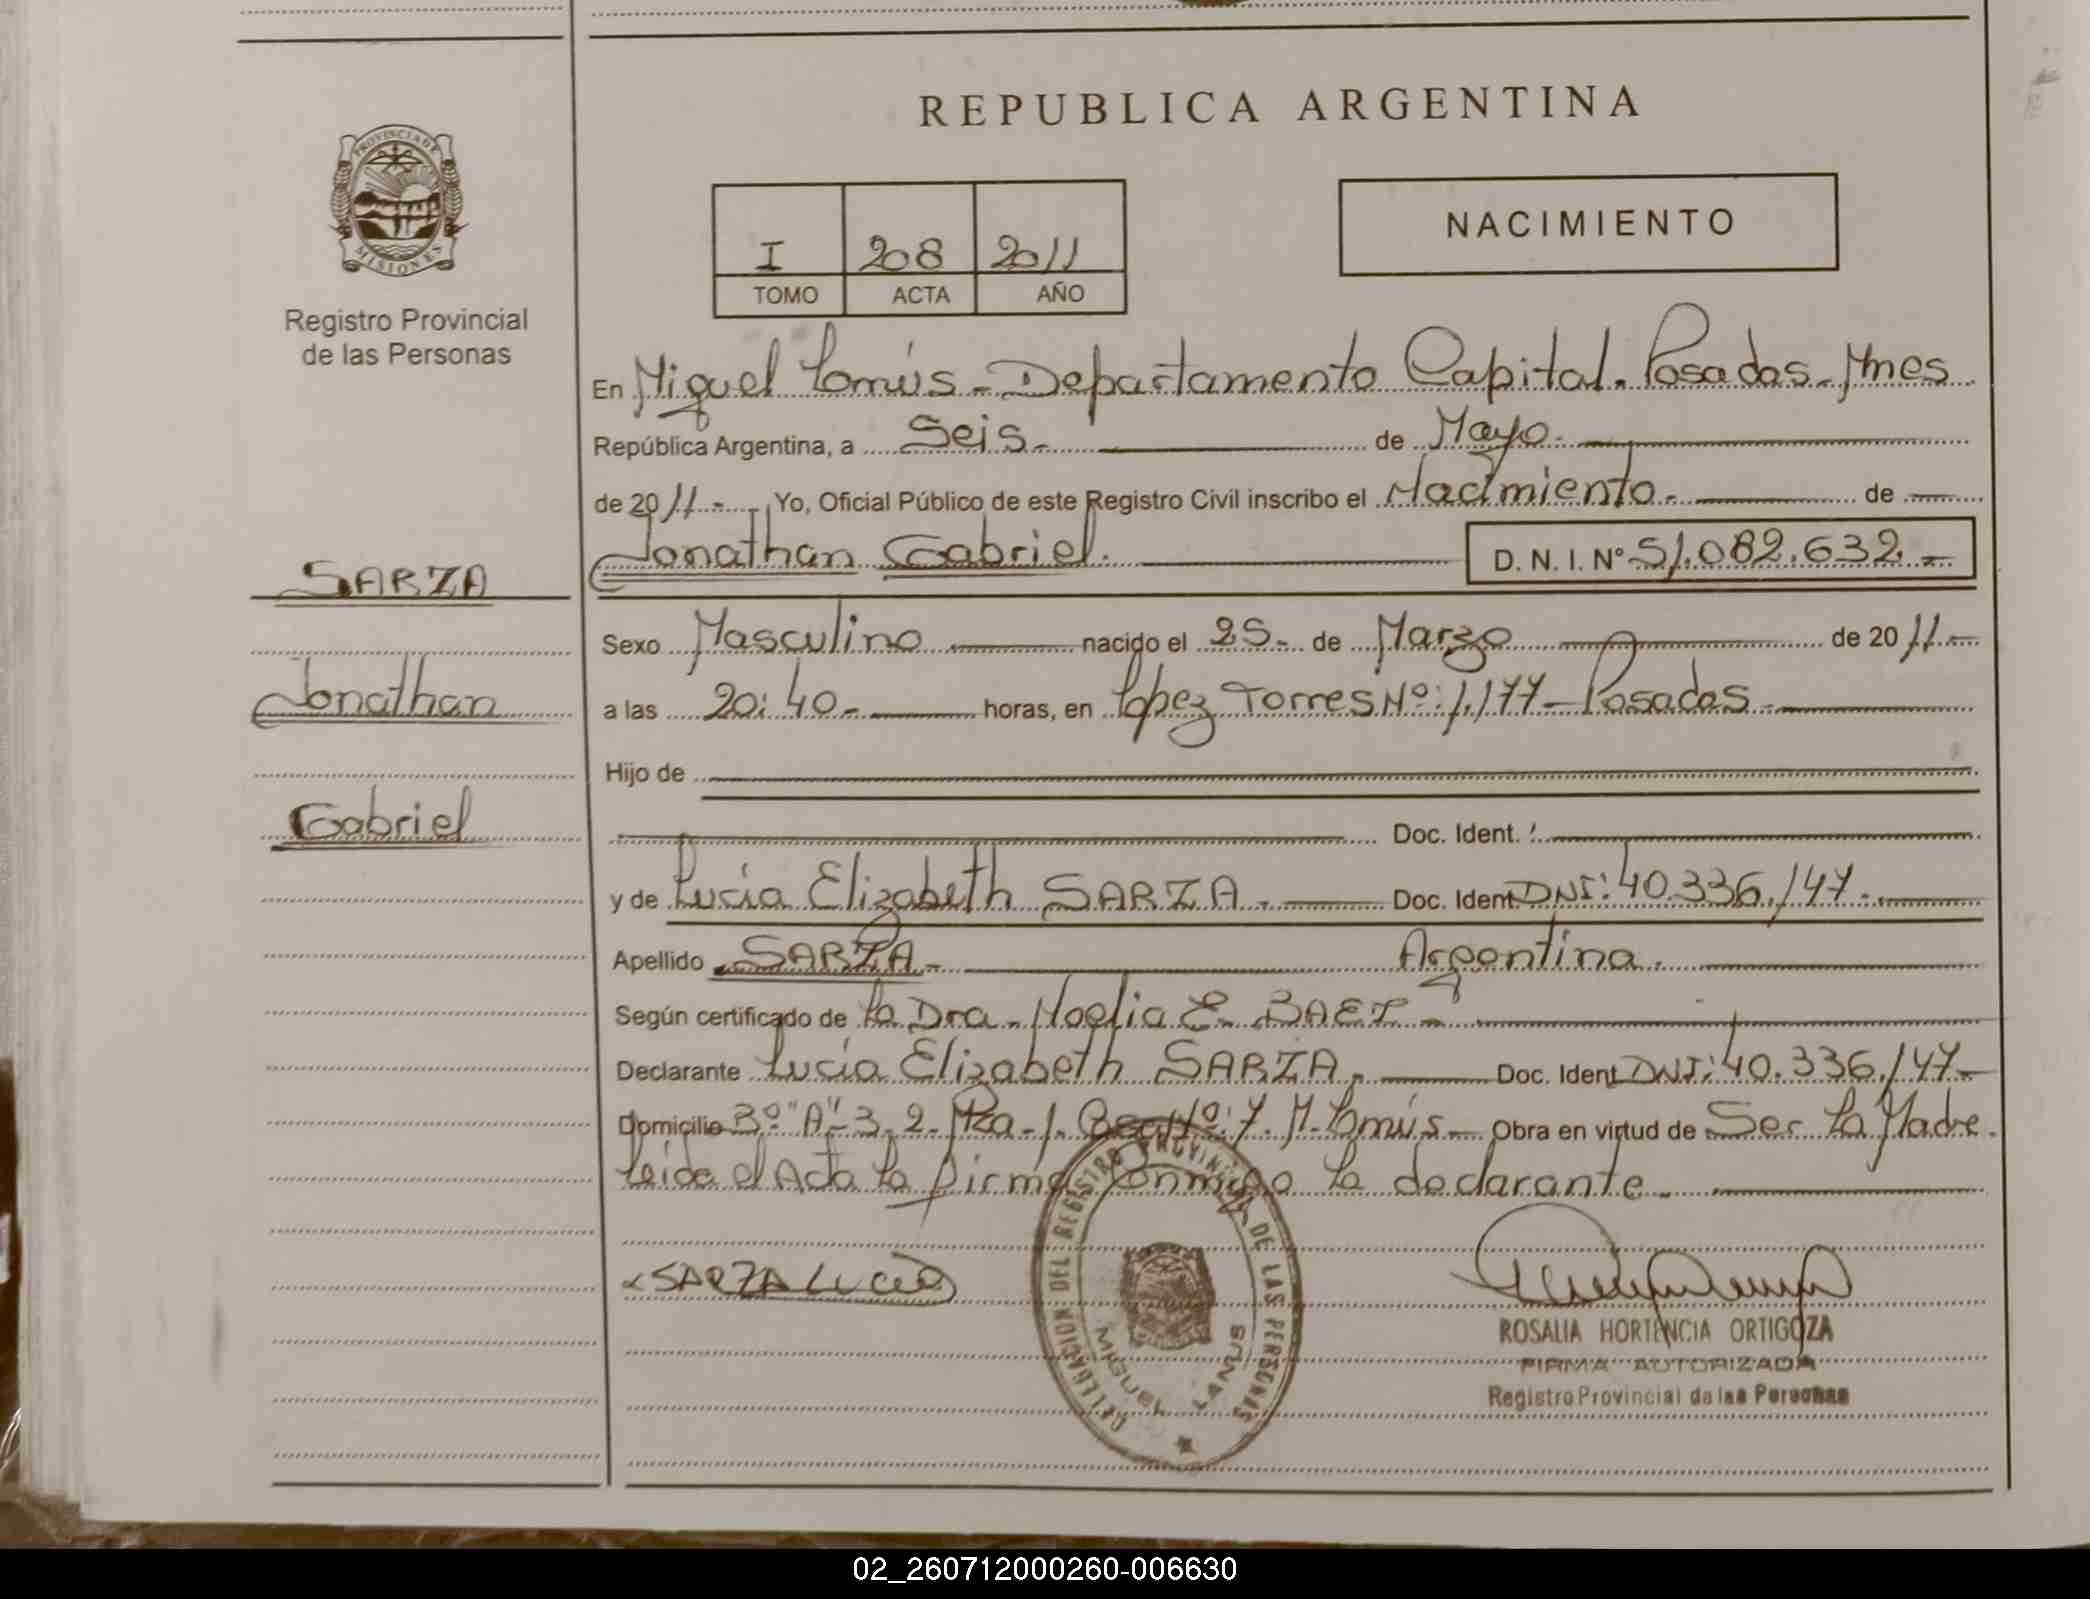 REPUBLICA ARGENTINA
PROVINCIA DE
MISIONES
Registro Provincial
de las Personas
I 208 2011
TOMO ACTA AÑO
NACIMIENTO
En Miguel Lanús - Departamento Capital. Posadas - Mnes
República Argentina, a Seis. de Mayo.
de 2011 - Yo, Oficial Público de este Registro Civil inscribo el Nacimiento - de
Jonathan Gabriel. D. N. I. Nº 51.082.632. -
SARZA
Jonathan
Gabriel
Sexo Masculino nacido el 25 - de Marzo de 2011 -
a las 20:40 - horas, en López Torres Nº: 1.177 - Posadas -
Hijo de
Doc. Ident.
y de Lucía Elizabeth SARZA - Doc. Ident DNI: 40.336.147 -
Apellido SARZA - Argentina.
Según certificado de la Dra. Noelia E. BAEZ -
Declarante Lucía Elizabeth SARZA - Doc. Ident DNI: 40.336.147 -
Domicilio 3º "A" - 3. 2. Mza - 1. Casa Nº: 7. M. Lanús - Obra en virtud de Ser la Madre.
leída el Acta la firma conmigo la declarante -
SARZA Lucia
DELEGACION DEL REGISTRO PROVINCIAL DE LAS PERSONAS
MIGUEL LANUS
ROSALIA HORTENCIA ORTIGOZA
FIRMA AUTORIZADA
Registro Provincial de las Personas
02_260712000260-006630